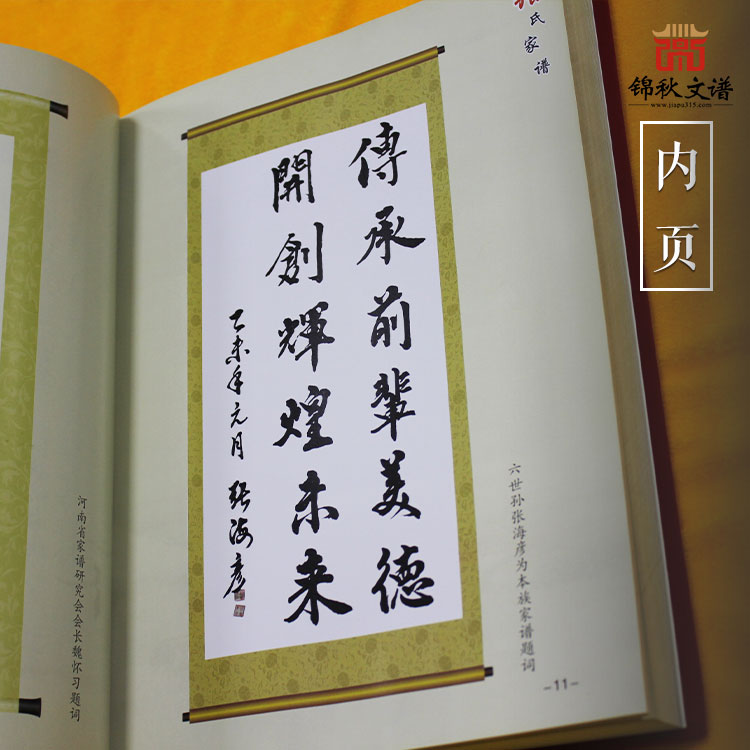 张氏家谱
锦秋文谱
www.jiapu315.com
内页
傳承前輩美德
開創輝煌未来
乙未年元月 张海彦
六世孙张海彦为本族家谱题词
河南省家谱研究会会长魏怀习题词
-11-